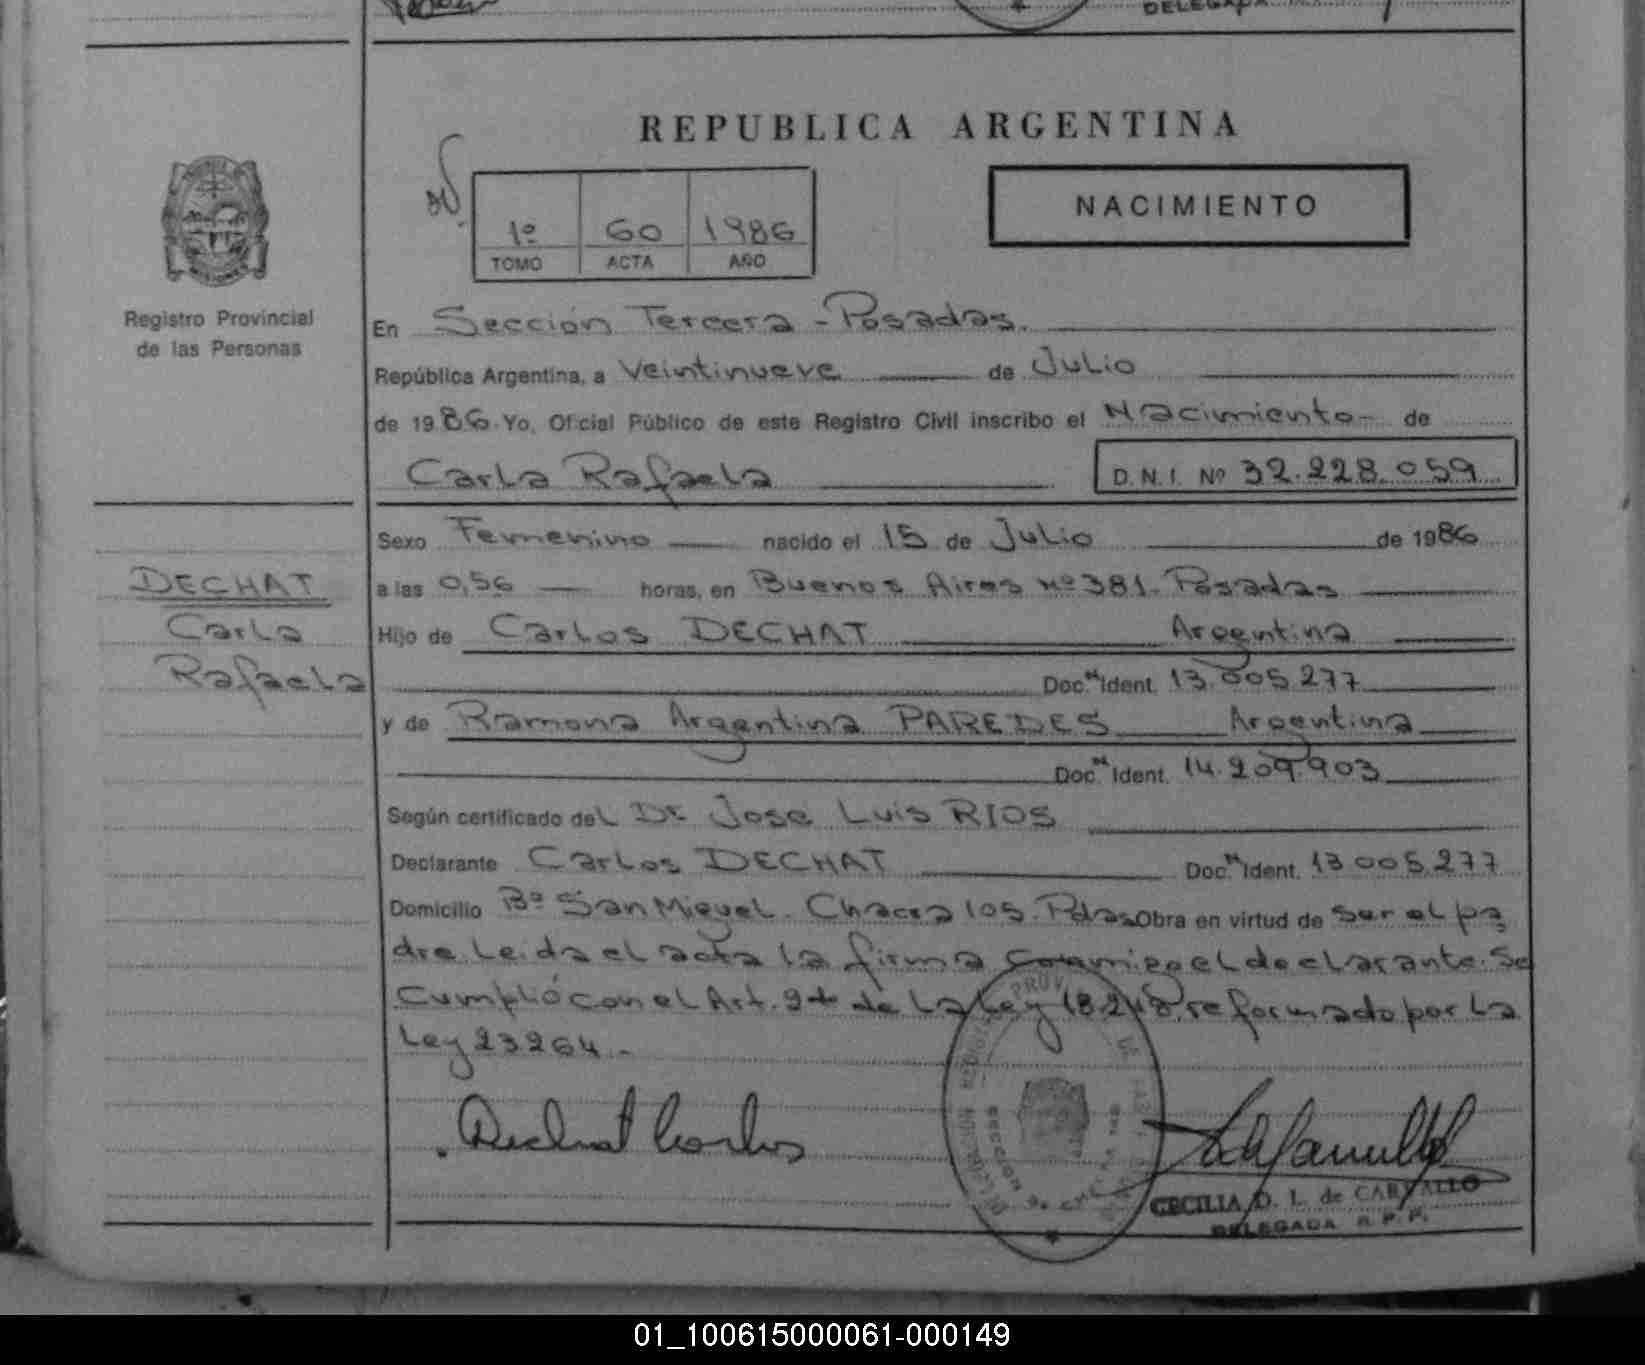 DELEGADA
REPUBLICA ARGENTINA
1º 60 1986
TOMO ACTA AÑO
NACIMIENTO
Registro Provincial
de las Personas
En Sección Tercera - Posadas.
República Argentina, a Veintinueve de Julio
de 1986 Yo, Oficial Público de este Registro Civil inscribo el Nacimiento - de
Carla Rafaela D.N.I. Nº 32.228.059
Sexo Femenino nacido el 15 de Julio de 1986
DECHAT
Carla
Rafaela
a las 0,56 horas, en Buenos Aires Nº 381. Posadas
Hijo de Carlos DECHAT Argentina
Doc. N Ident. 13.005.277
y de Ramona Argentina PAREDES Argentina
Doc. N Ident. 14.209.903
Según certificado del Dr Jose Luis RIOS
Declarante Carlos DECHAT Doc. N Ident. 13.005.277
Domicilio Bº San Miguel. Chacra 105. Pdas Obra en virtud de ser el pa
dre. Leida el acta la firma conmigo el declarante. Se
Cumplió con el Art. 2º de la Ley 18.248, reformado por la
Ley 23264 -
Dechat Carlos
CECILIA D. L. de CARVALLO
DELEGADA R. P. P.
01_100615000061-000149